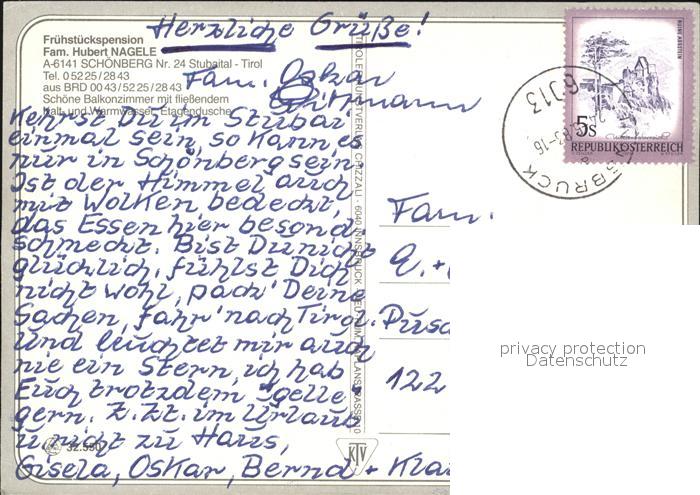 Herzliche Grüße!
Frühstückspension
Fam. Hubert NAGELE
A-6141 SCHÖNBERG Nr. 24 Stubaital - Tirol
Tel. 0 52 25 / 28 43
aus BRD 00 43 / 52 25 / 28 43
Schöne Balkonzimmer mit fließendem
Kalt- und Warmwasser, Etagendusche
Fam. Oskar
Kehrst Du im Stubai
einmal sein, so kann es
nur in Schönberg sein.
Ist der Himmel auch
mit Wolken bedeckt,
das Essen hier besond.
schmeckt. Bist Du nicht
glücklich, fühlst Dich
nicht wohl, pack' Deine
Sachen, fahr' nach Tirol.
Und leuchtet mir auch
nie ein Stern, ich hab
Euch trotzdem "gelle"
gern. Z. Zt. im Urlaub
u. nicht zu Haus,
Gisela, Oskar, Bernd + Kla
32.590
KTV
5s
REPUBLIK ÖSTERREICH
6013
INNSBRUCK
Fam.
122
privacy protection
Datenschutz